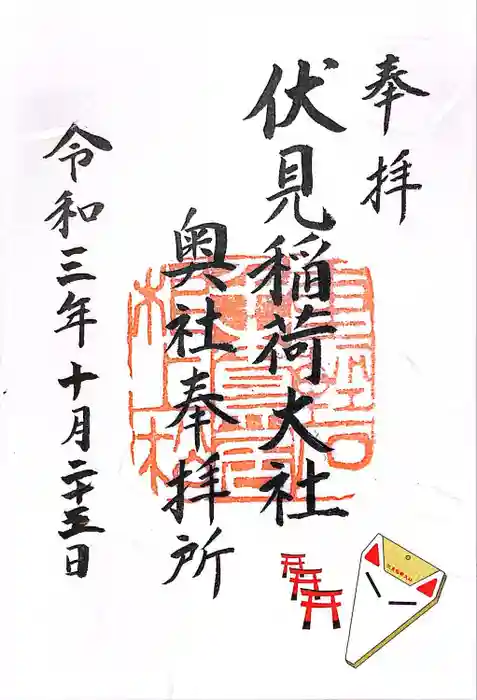 奉拝
伏見稲荷大社
奥社奉拝所
令和三年十月二十三日